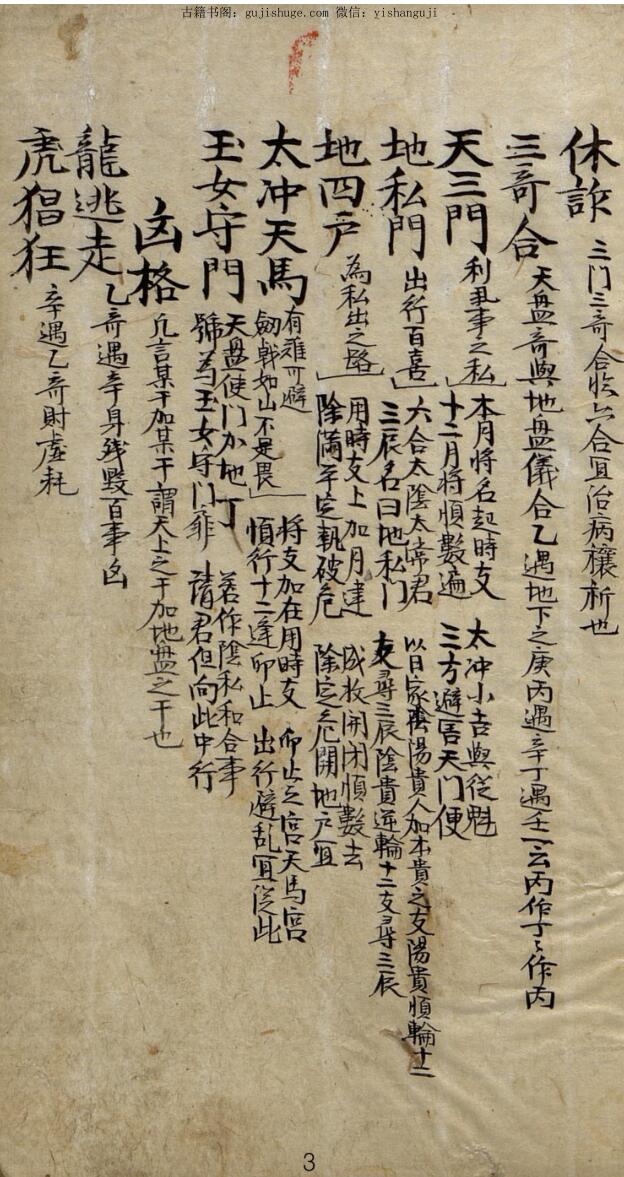 古籍书阁：gujishuge.com 微信：yishanguji
休詐 三门三奇合临六合宜治病禳祈也
三奇合 天盘奇與地盘儀合乙遇地下之庚丙遇辛丁遇壬一云丙作丁丁作丙
天三門 利私事之私 本月将名起時支 太冲小吉與從魁
十二月將順數遍 三方避害天门便
地私門 出行百喜 六合太陰太常君 以日家陰陽貴人加本貴之支陽貴順輪十二
三辰名曰地私门 支尋三辰陰貴逆輪十二支尋三辰
地四户 為私出之路 用時支上加月建 成收開闭順數去
除滿平定執破危 除定危開地户宜
太冲天馬 有难可避 将支加在用時支 卯止之宫天馬宫
劍戟如山不足畏 順行十二逢卯止 出行避乱宜從此
玉女守門 天盘使门加地丁 若作陰私和合事
號為玉女守门 請君但向此中行
凶格 凡言某干加某干謂天上之干加地盘之干也
龍逃走 乙奇遇辛身残毀百事凶
虎猖狂 辛遇乙奇財虚耗
3